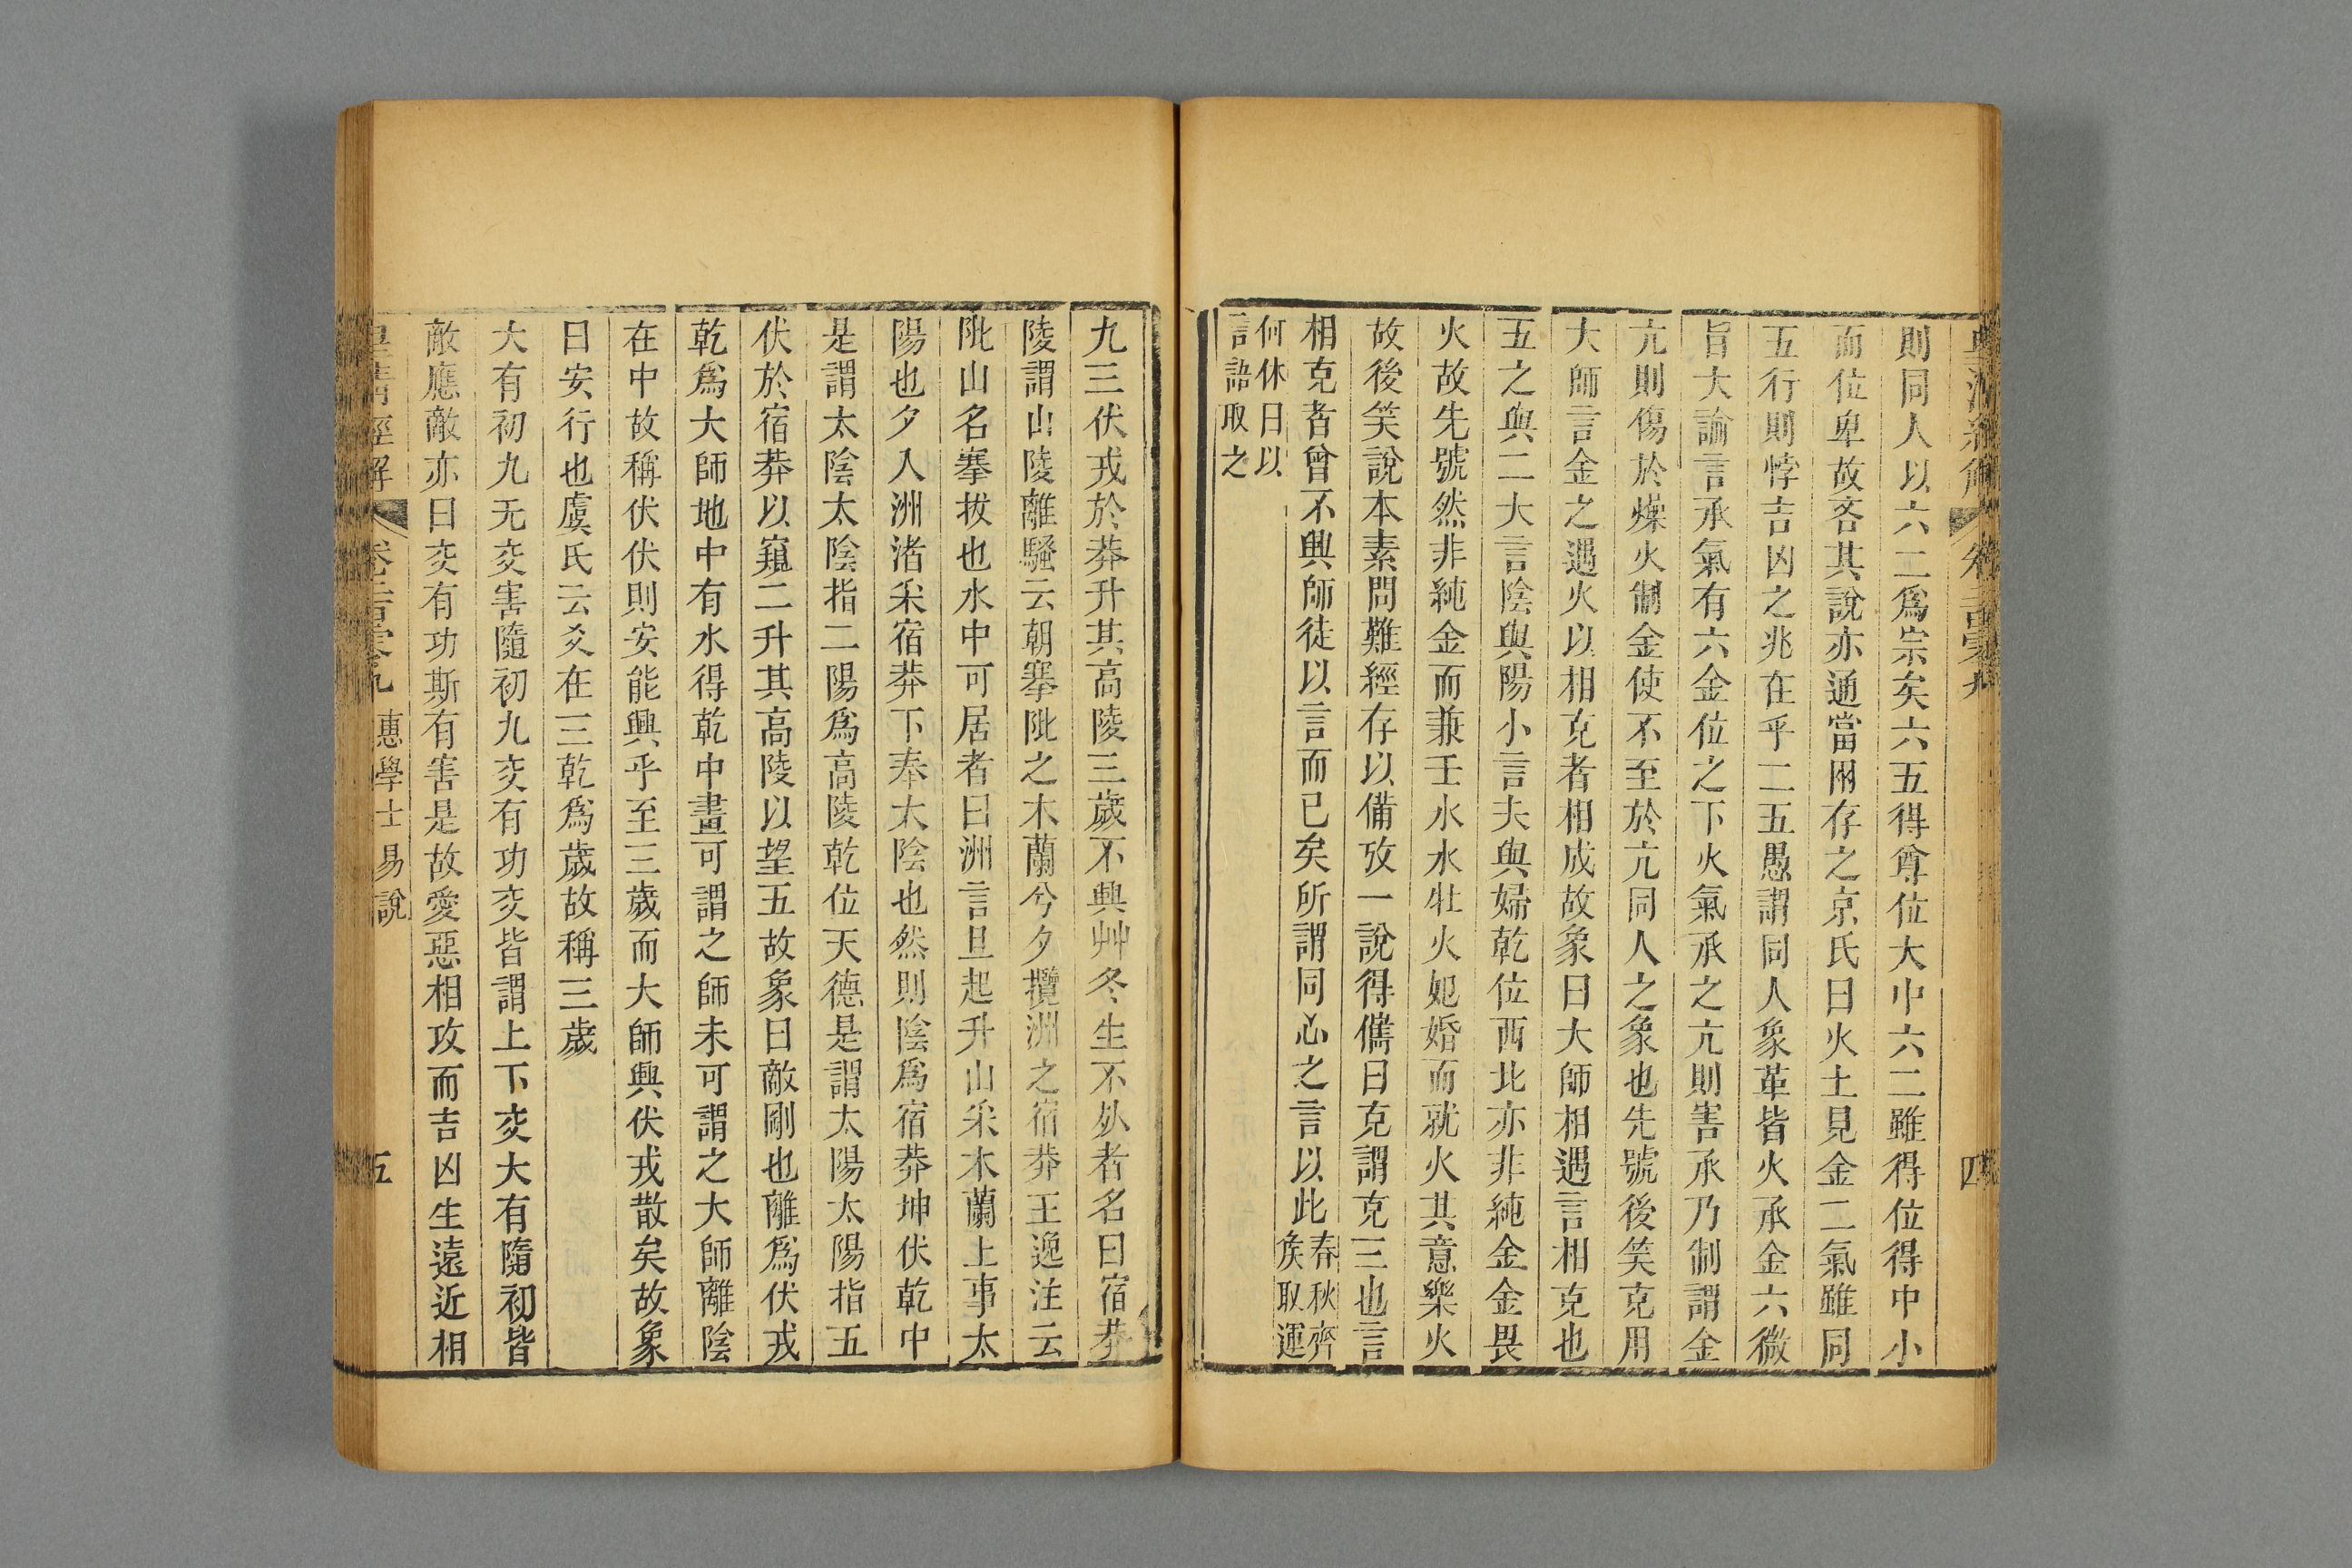 則同人以六二爲宗矣六五得尊位大中六二雖得位得中小
而位卑故吝其說亦通當兩存之京氏曰火土見金二氣雖同
五行則悖吉凶之兆在乎二五愚謂同人象革皆火承金六微
旨大論言承氣有六金位之下火氣承之亢則害承乃制謂金
亢則傷於燥火制金使不至於亢同人之象也先號後笑克用
大師言金之遇火以相克者相成故象曰大師相遇言相克也
五之與二大言陰與陽小言夫與婦乾位西北亦非純金金畏
火故先號然非純金而兼壬水水牡火妃婚而就火其意樂火
故後笑說本素問難經存以備攷一說得儁曰克謂克三也言
相克者曾不興師徒以言而已矣所謂同心之言以此春秋齊
矦取運
何休曰以
言語取之
九三伏戎於莽升其高陵三歲不興艸冬生不死者名曰宿莽
陵謂山陵離騷云朝搴阰之木蘭兮夕攬洲之宿莽王逸注云
阰山名搴拔也水中可居者曰洲言旦起升山采木蘭上事太
陽也夕入洲渚采宿莽下奉太陰也然則陰爲宿莽坤伏乾中
是謂太陰太陰指二陽爲高陵乾位天德是謂太陽太陽指五
伏於宿莽以窺二升其高陵以望五故象曰敵剛也離爲伏戎
乾爲大師地中有水得乾中畫可謂之師未可謂之大師離陰
在中故稱伏伏則安能興乎至三歲而大師興伏戎散矣故象
曰安行也虞氏云爻在三乾爲歲故稱三歲
大有初九无交害隨初九交有功交皆謂上下交大有隨初皆
敵應敵亦曰交有功斯有害是故愛惡相攻而吉凶生遠近相
皇清經解 惠學士易說 五